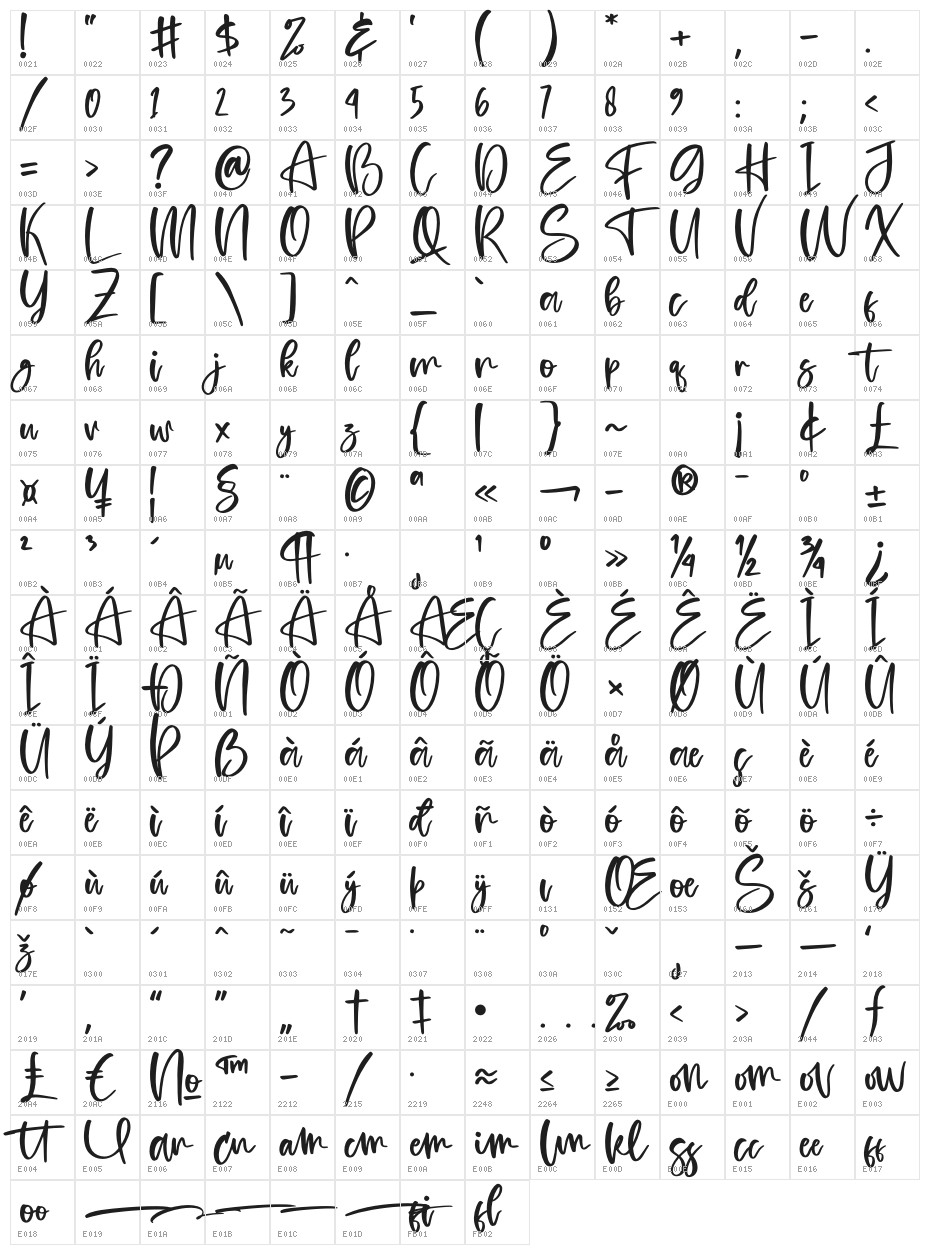 ! " # $ % & ' ( ) * + , - .
0021 0022 0023 0024 0025 0026 0027 0028 0029 002A 002B 002C 002D 002E
/ 0 1 2 3 4 5 6 7 8 9 : ; <
002F 0030 0031 0032 0033 0034 0035 0036 0037 0038 0039 003A 003B 003C
= > ? @ A B C D E F G H I J
003D 003E 003F 0040 0041 0042 0043 0044 0045 0046 0047 0048 0049 004A
K L M N O P Q R S T U V W X
004B 004C 004D 004E 004F 0050 0051 0052 0053 0054 0055 0056 0057 0058
Y Z [ \ ] ^ _ ` a b c d e f
0059 005A 005B 005C 005D 005E 005F 0060 0061 0062 0063 0064 0065 0066
g h i j k l m n o p q r s t
0067 0068 0069 006A 006B 006C 006D 006E 006F 0070 0071 0072 0073 0074
u v w x y z { | } ~ ¡ ¢ £
0075 0076 0077 0078 0079 007A 007B 007C 007D 007E 00A0 00A1 00A2 00A3
¤ ¥ ¦ § ¨ © ª « ¬ - ® ¯ ° ±
00A4 00A5 00A6 00A7 00A8 00A9 00AA 00AB 00AC 00AD 00AE 00AF 00B0 00B1
² ³ ´ µ ¶ · ¸ ¹ º » ¼ ½ ¾ ¿
00B2 00B3 00B4 00B5 00B6 00B7 00B8 00B9 00BA 00BB 00BC 00BD 00BE 00BF
À Á Â Ã Ä Å Æ Ç È É Ê Ë Ì Í
00C0 00C1 00C2 00C3 00C4 00C5 00C6 00C7 00C8 00C9 00CA 00CB 00CC 00CD
Î Ï Ð Ñ Ò Ó Ô Õ Ö × Ø Ù Ú Û
00CE 00CF 00D0 00D1 00D2 00D3 00D4 00D5 00D6 00D7 00D8 00D9 00DA 00DB
Ü Ý Þ ß à á â ã ä å æ ç è é
00DC 00DD 00DE 00DF 00E0 00E1 00E2 00E3 00E4 00E5 00E6 00E7 00E8 00E9
ê ë ì í î ï ð ñ ò ó ô õ ö ÷
00EA 00EB 00EC 00ED 00EE 00EF 00F0 00F1 00F2 00F3 00F4 00F5 00F6 00F7
ø ù ú û ü ý þ ÿ ı Œ œ Š š Ÿ
00F8 00F9 00FA 00FB 00FC 00FD 00FE 00FF 0131 0152 0153 0160 0161 0178
ž ̀ ́ ̂ ̃ ̄ ̇ ̈ ̊ ̌ ̧ – — ‘
017E 0300 0301 0302 0303 0304 0307 0308 030A 030C 0327 2013 2014 2018
’ ‚ “ ” „ † ‡ • … ‰ ‹ › ⁄ ₣
2019 201A 201C 201D 201E 2020 2021 2022 2026 2030 2039 203A 2044 20A3
₤ € № ™ − ∕ ∙ ≈ ≤ ≥ on om ov ow
20A4 20AC 2116 2122 2212 2215 2219 2248 2264 2265 E000 E001 E002 E003
tt U an cn am cm em im ln kl ss cc ee ff
E004 E005 E006 E007 E008 E009 E00A E00B E00C E00D E00E E015 E016 E017
oo fi fl
E018 E019 E01A E01B E01C E01D FB01 FB02